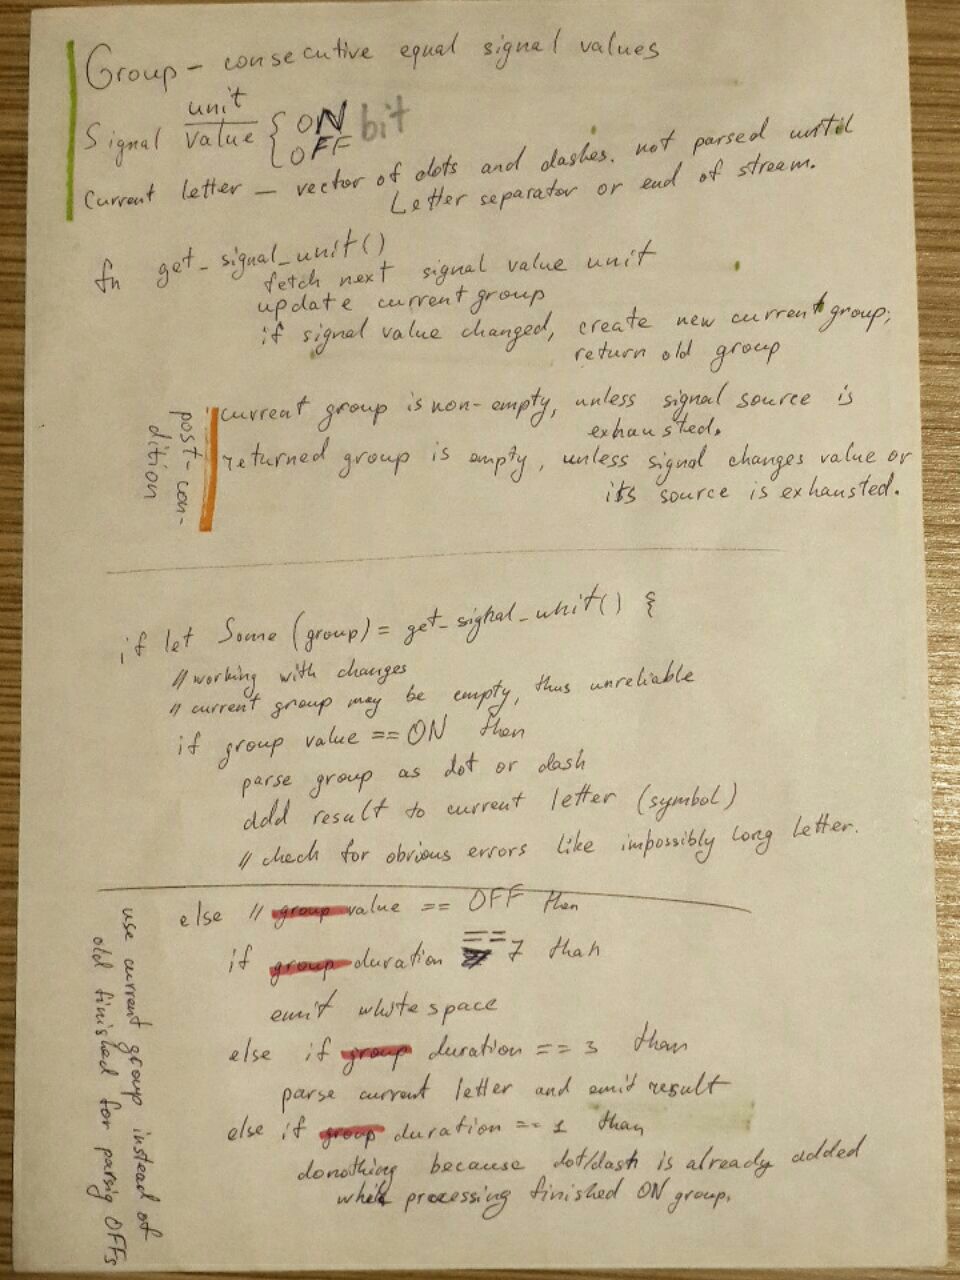 Group – consecutive equal signal values
Signal unit / value { ON OFF bit
Current letter – vector of dots and dashes. not parsed until
Letter separator or end of stream.
fn get_signal_unit()
fetch next signal value unit
update current group
if signal value changed, create new current group;
return old group
post-con-
dition
current group is non-empty, unless signal source is
exhausted.
returned group is empty, unless signal changes value or
its source is exhausted.
if let Some (group) = get_signal_unit() {
// working with changes
// current group may be empty, thus unreliable
if group value == ON then
parse group as dot or dash
add result to current letter (symbol)
// check for obvious errors like impossibly long letter.
else // group value == OFF then
if group duration == 7 than
emit white space
else if group duration == 3 than
parse current letter and emit result
else if group duration == 1 than
donothing because dot/dash is already added
while processing finished ON group.
use current group instead of
old finished for parsig OFFs